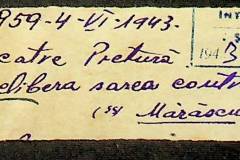 959-4-VI-1943.
catre Pretură
elibera sarea contr
(ss Mărăscu
INT
194 3